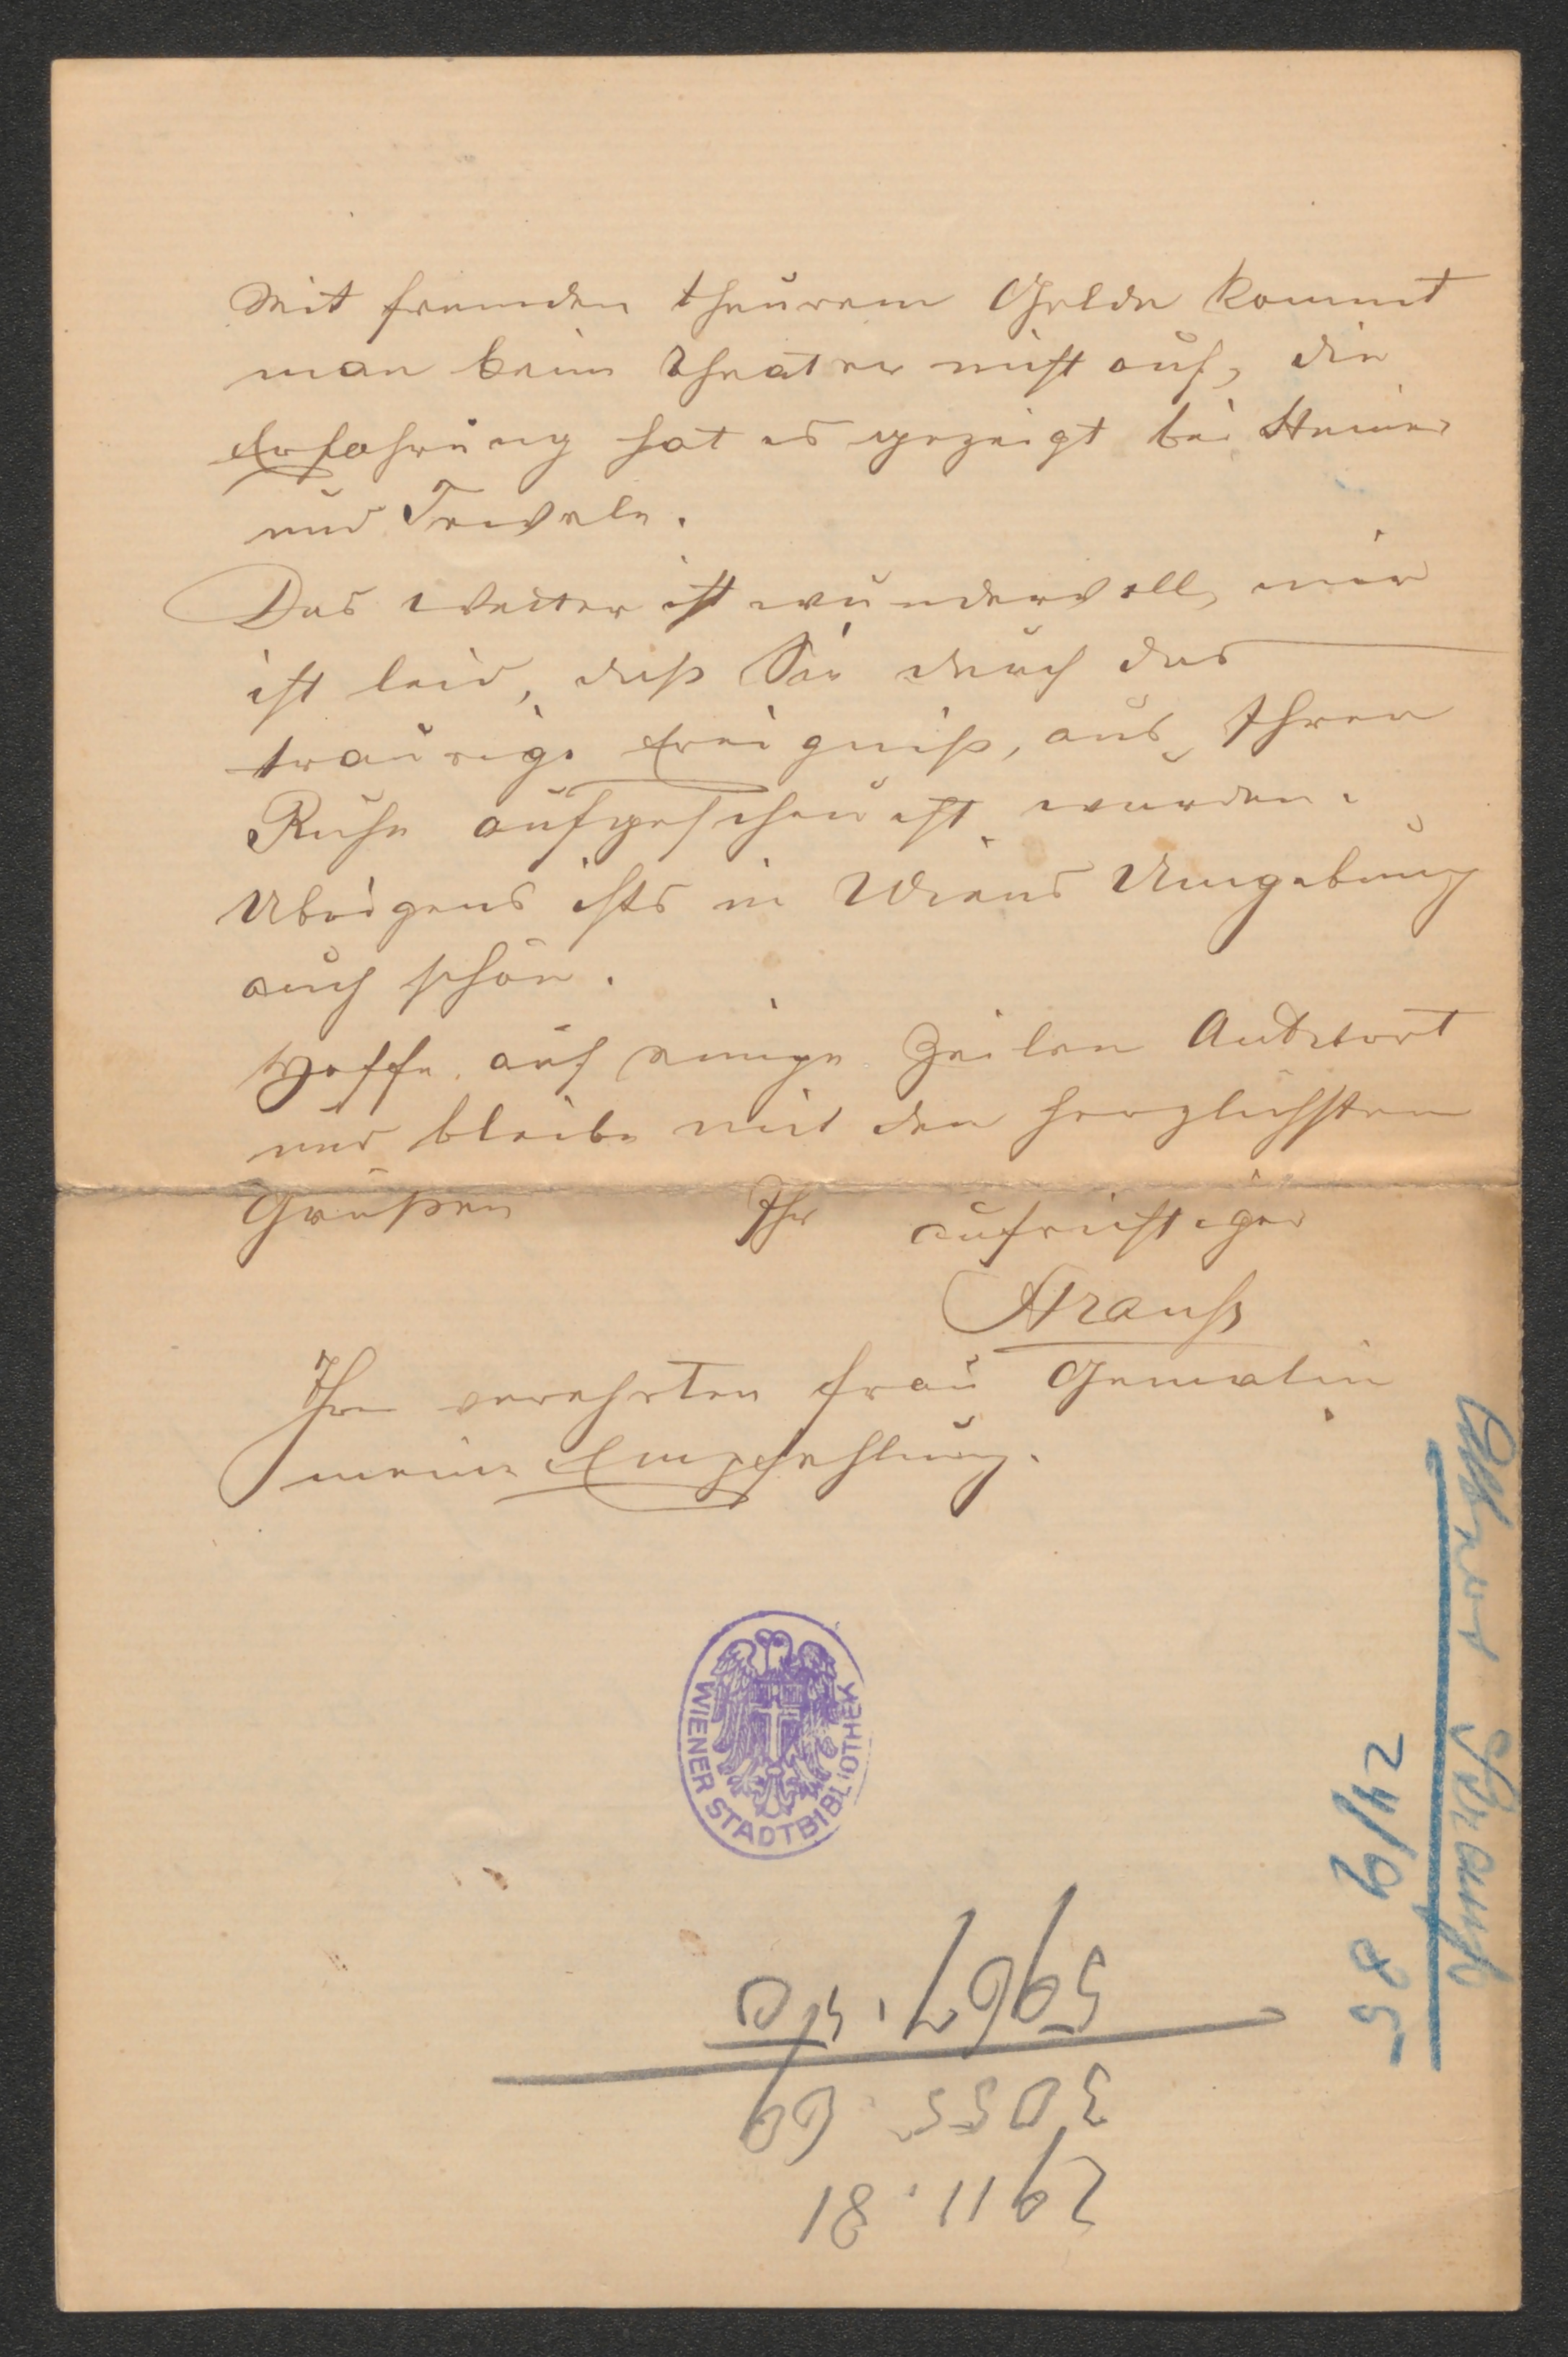 Mit fremden theurem Gelde kommt
man beim Theater nicht auf, die
Erfahrung hat es gezeigt bei Steiner
und Tewele.
Das Wetter ist wundervoll, mir
ist leid, daß Sie durch das
traurige Ereigniß, aus Ihrer
Ruhe aufgescheucht wurden.
Übrigens ists in Wiens Umgebung
auch schön.
Hoffe auf einige Zeilen Antwort
und bleibe mit den herzlichsten
Grüßen Ihr aufrichtiger
Strauß
Ihrer verehrten Frau Gemalin
meine Empfehlung.
WIENER STADTBIBLIOTHEK
Strauß
24/9 85
2911.81
3055.69
5967.50